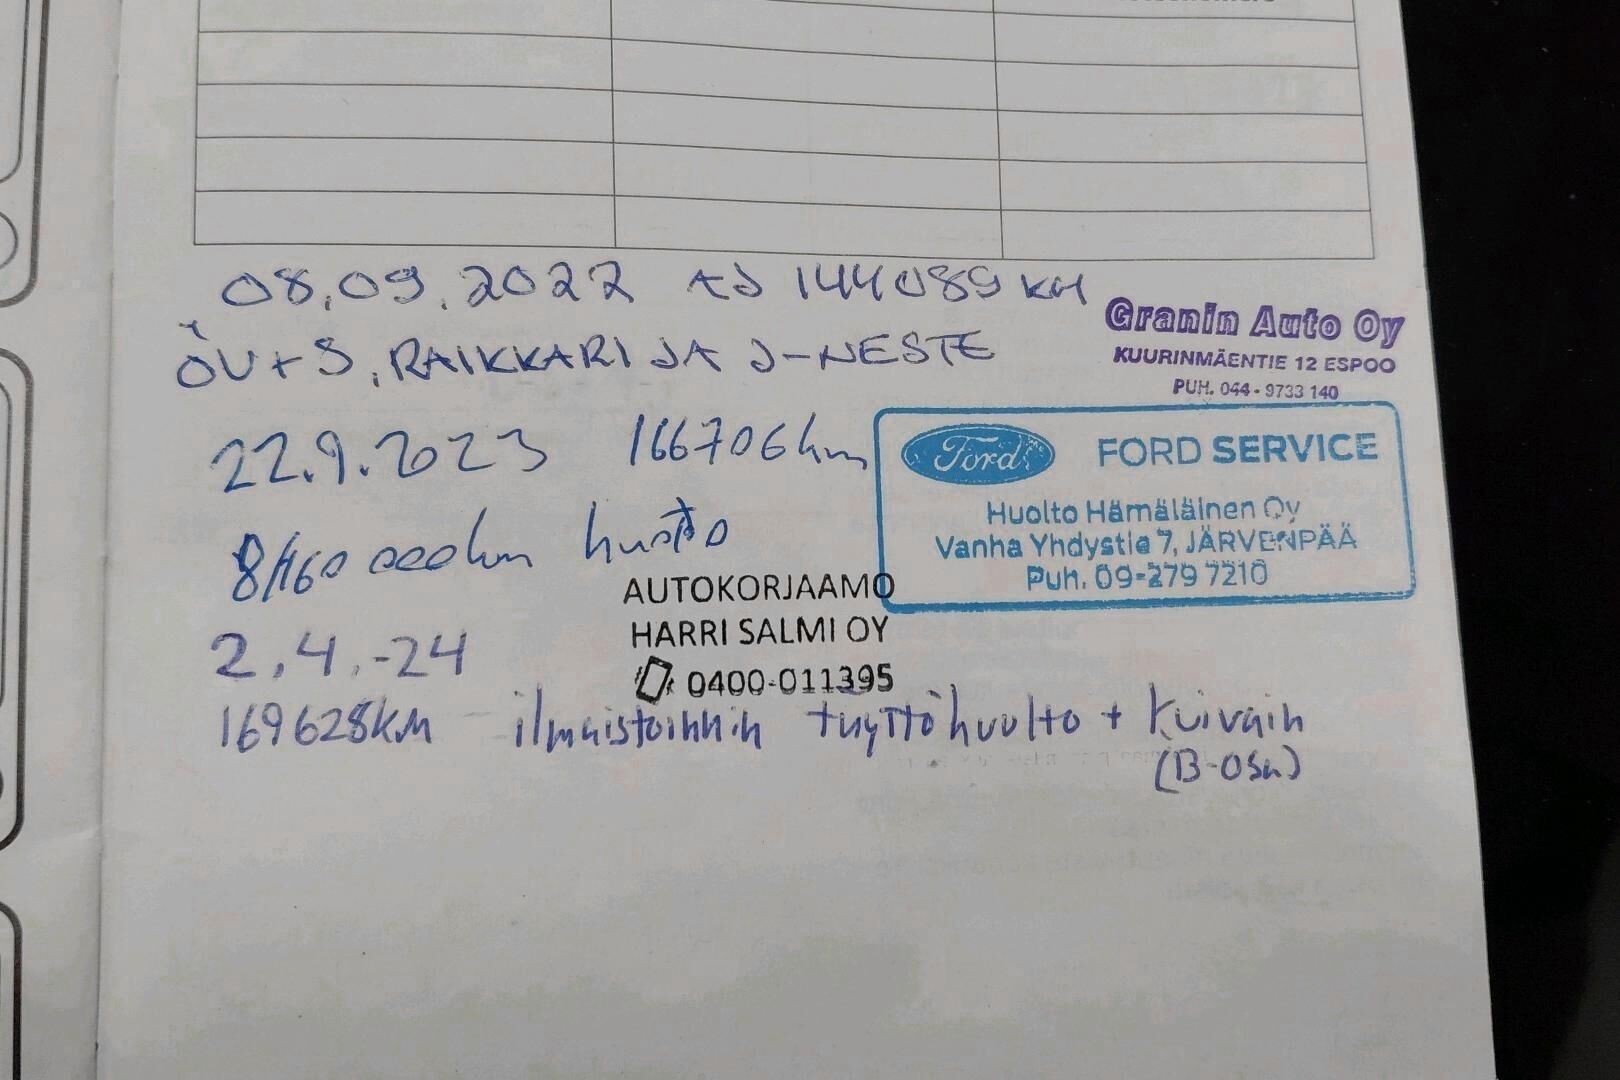 08.09.2022 AJ 144089 KM
ÖV+S, RAIKKARI JA J-NESTE
Granin Auto Oy
KUURINMÄENTIE 12 ESPOO
PUH. 044 - 9733 140
22.9.2023 166706 km
8/160 000km huolto
Ford
FORD SERVICE
Huolto Hämäläinen Oy
Vanha Yhdystie 7, JÄRVENPÄÄ
Puh. 09-279 7210
AUTOKORJAAMO
HARRI SALMI OY
0400-011395
2.4.-24
169628KM ilmastoinnin täyttöhuolto + kuivain
(B-osa)